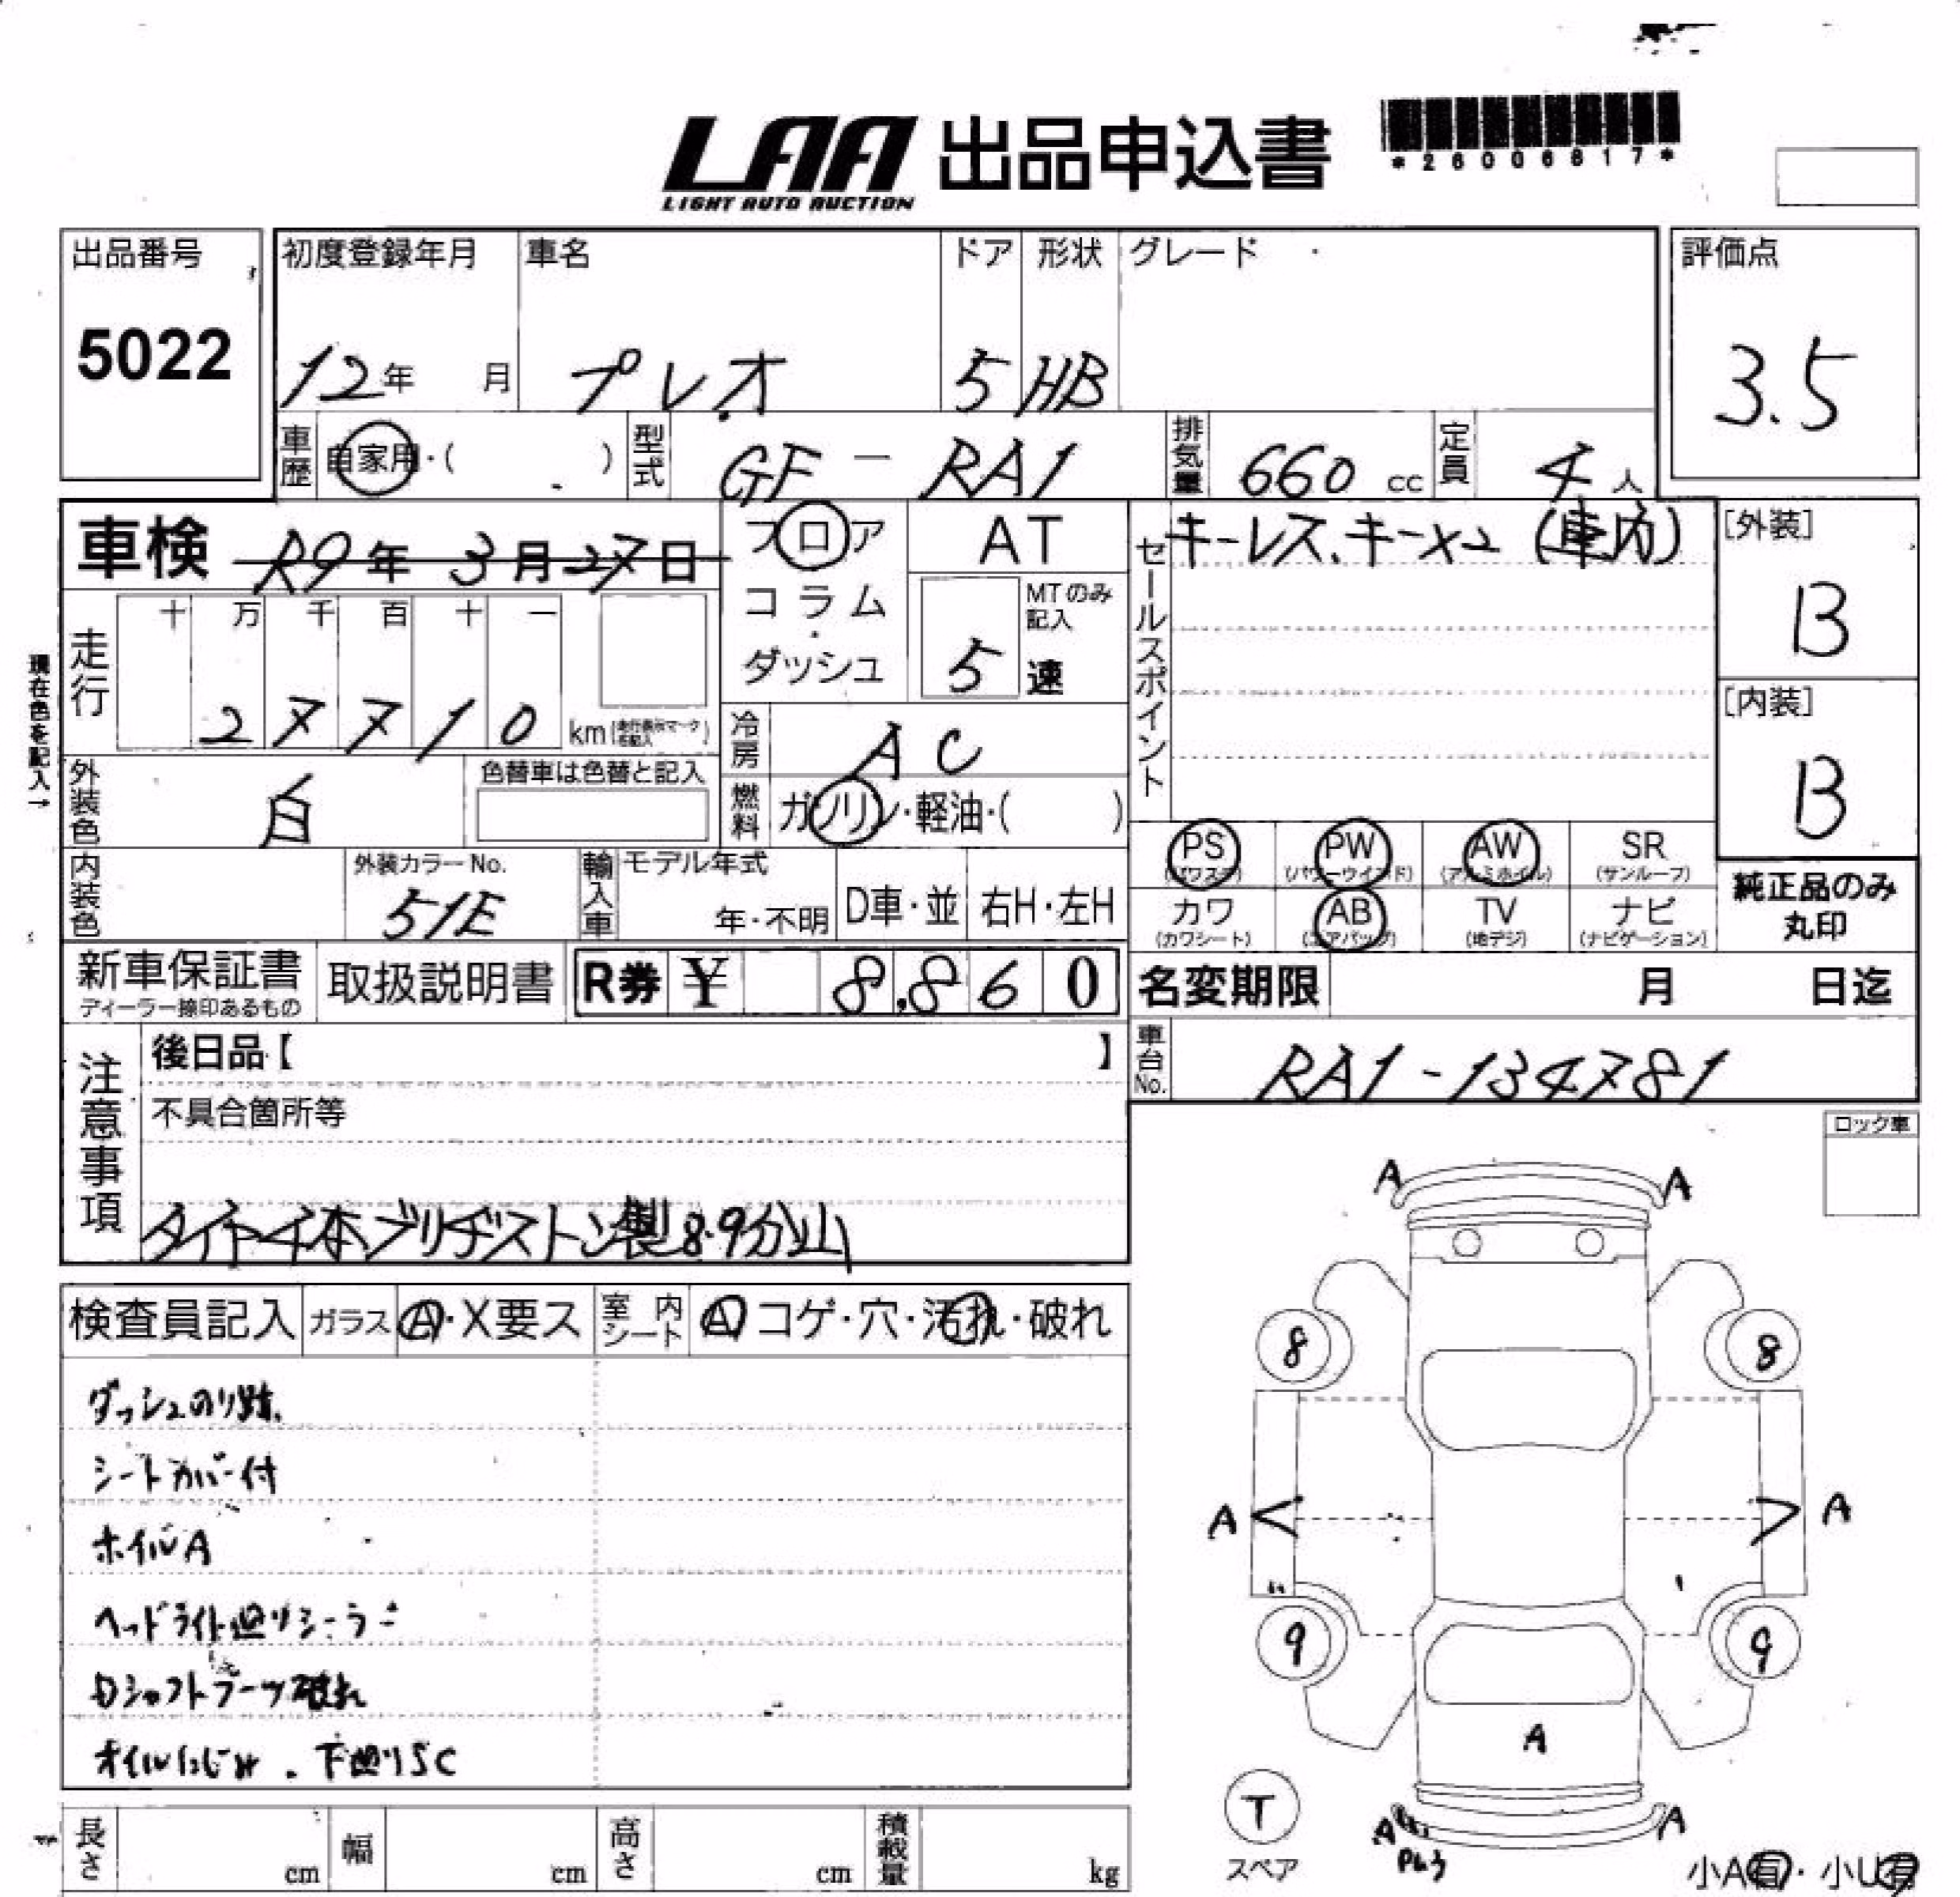 LAA 出品申込書
LIGHT AUTO AUCTION
*26006817*
出品番号
5022
初度登録年月
12年 月
車名
プレオ
ドア
5
形状
HB
グレード
評価点
3.5
車歴
自家用・( )
型式
GF - RA1
排気量
660 cc
定員
4 人
車検 R9年 3月 27日
フロア
コラム
ダッシュ
AT
MTのみ記入
5 速
セールスポイント
キーレス、キー×2 (車内)
[外装]
B
[内装]
B
現在色を記入→
走行
十 万 千 百 十 一
2 7 7 1 0 km
冷房
AC
外装色
白
色替車は色替と記入
燃料
ガソリン・軽油・( )
内装色
外装カラーNo.
51E
輸入車
モデル年式
年・不明
D車・並
右H・左H
PS
(パワステ)
PW
(パワーウインド)
AW
(アルミホイル)
SR
(サンルーフ)
カワ
(カワシート)
AB
(エアバッグ)
TV
(地デジ)
ナビ
(ナビゲーション)
純正品のみ
丸印
新車保証書
ディーラー捺印あるもの
取扱説明書
R券 ¥ 8,860
名変期限 月 日迄
車台No.
RA1-134781
注意事項
後日品【 】
不具合箇所等
タイヤ4本ブリヂストン製8.9分山
ロック車
検査員記入
ガラス
A・X要ス
室内シート
A コゲ・穴・汚れ・破れ
ダッシュのり跡.
シートカバー付
ホイルA
ヘッドライト廻りシーラー
Dシャフトブーツ破れ
オイルにじみ . 下廻りSC
A A
8 8
A A
9 9
A
T
スペア
A A
小A有・小U有
長さ cm
幅 cm
高さ cm
積載量 kg